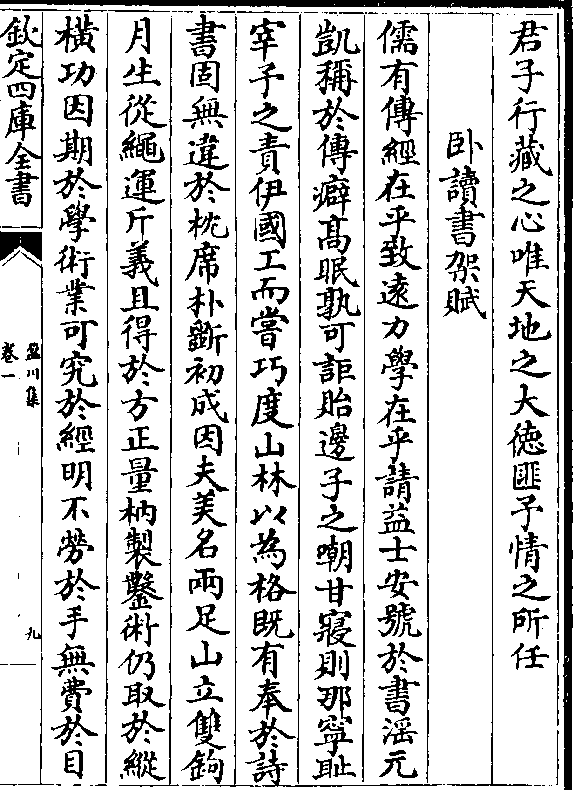 君子行藏之心唯天地之大徳匪予情之所任
卧讀書架賦
儒有傳經在乎致逺力學在乎請益士安號於書滛元
凱稱於傳癖髙眠孰可詎貽邊子之嘲甘寢則那寧耻
宰予之責伊國工而嘗巧度山林以為格既有奉於詩
書固無違於枕席朴斲初成因夫美名兩足山立雙鉤
月生從繩運斤義且得於方正量枘製鑿術仍取於縱
横功因期於學術業可究於經明不勞於手無費於目
欽定四庫全書
盈川集
卷一
九